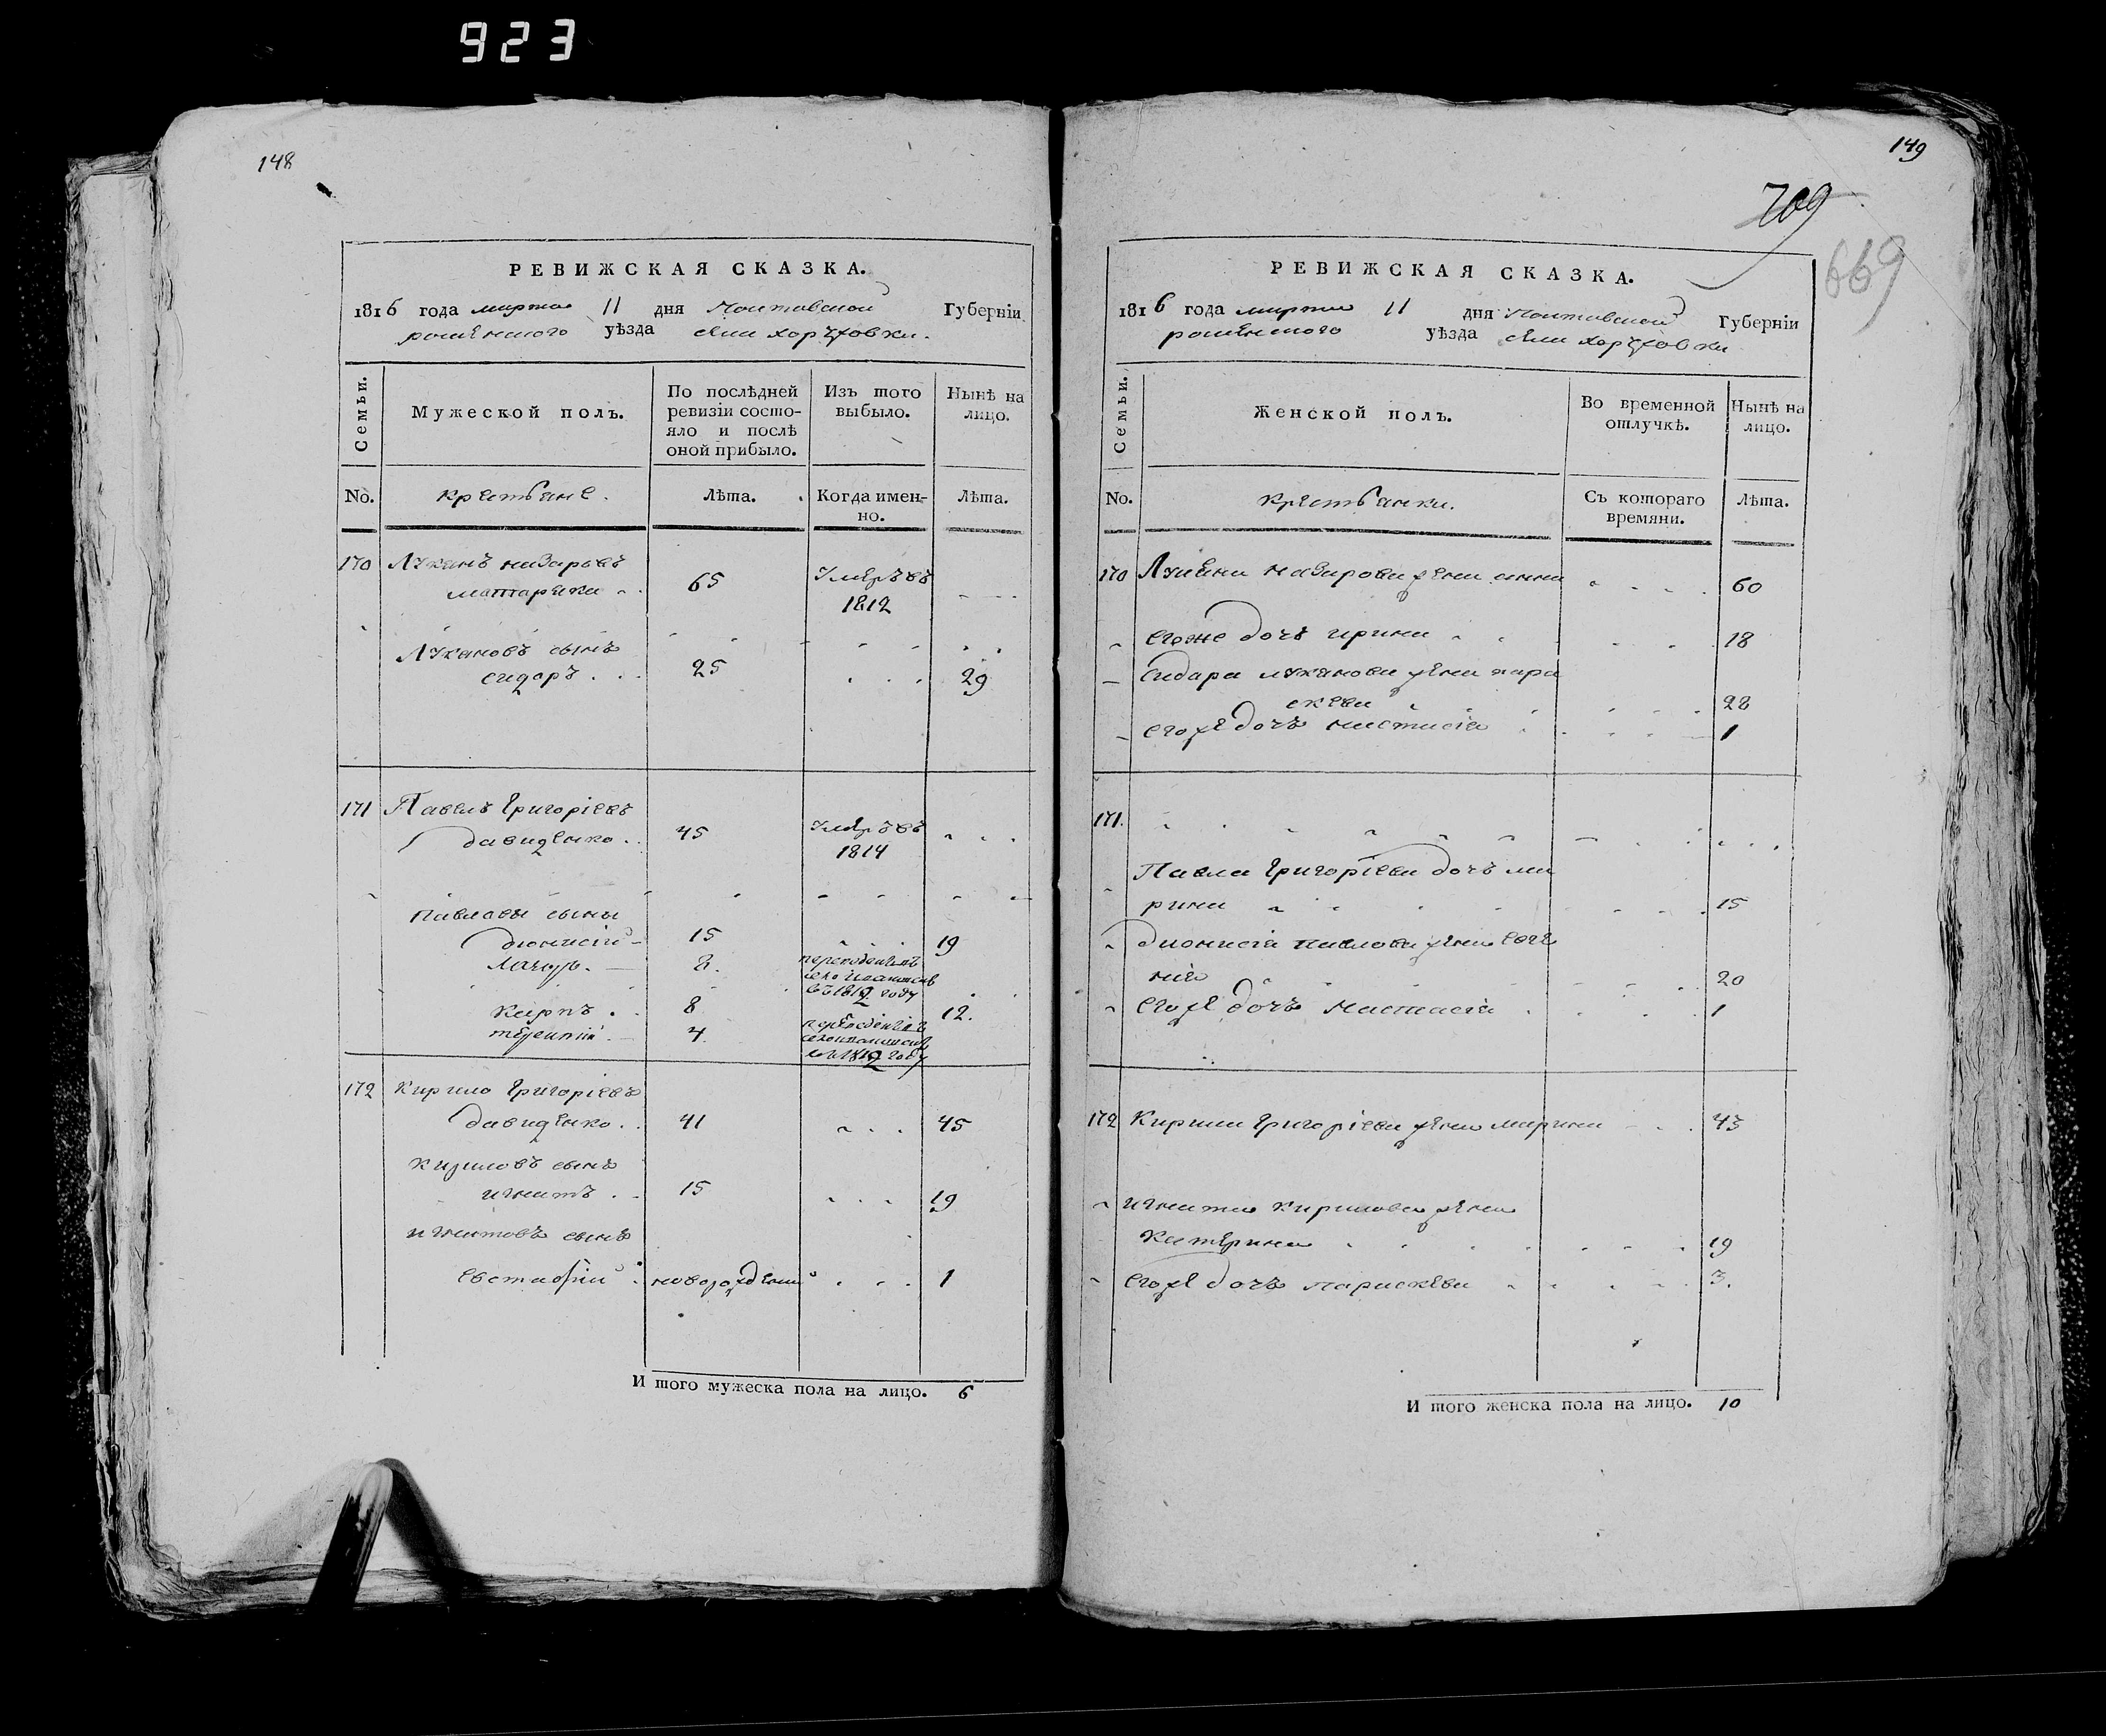 923
148
РЕВИЖСКАЯ СКАЗКА.
1816 года марта 11 дня Полтавской Губерніи
роменского уѣзда села хоружовки.
Семьи.
Мужеской полъ.
По послѣдней ревизіи состояло и послѣ оной прибыло.
Изъ того выбыло.
Ныне на лицо.
No. крестьяне. Лѣта. Когда именно. Лѣта.
170 Луканъ назарьевъ
65 Умеръ въ
1812
Лукановъ сынъ
сидоръ 25 29
171 Павелъ Григоріевъ
давиденко 45 Умеръ въ
1814
павловы сыны
дионисій 15 19
8.
въ 1812 году
карпъ 8 12.
терентій 4
въ 1812 году
172 Кирило Григоріевъ
давиденко 41 45
Кириловъ сынъ
игнатъ 15 19
игнатовъ сынъ
евстафій новорожденный 1
И того мужеска пола на лицо. 6
149
709
669
РЕВИЖСКАЯ СКАЗКА.
1816 года марта 11 дня Полтавской Губерніи
роменского уѣзда села хоружовки
Семьи.
Женской полъ.
Во временной отлучкѣ.
Нынѣ на лицо.
No. крестьянки. Съ котораго времяни. Лѣта.
170 Лукана назарова жена анна 60
егоже дочь ирина 18
сидара луканова жена пара
скева 28
егоже дочь настасія 1
171.
Павла Григоріева дочь ма
рина 15
дионисія павлова жена евге
нія 20
егоже дочь настасія 1
172 Кирила Григоріева жена марина 43
игната кирилова жена
Катерина 19
егоже дочь параскева 3.
И того женска пола на лицо. 10